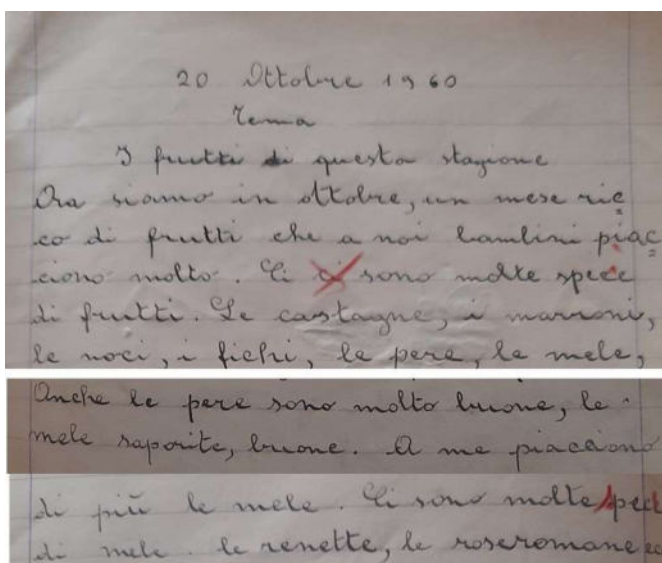 20 Ottobre 1960
Tema
I frutti di questa stagione
Ora siamo in ottobre, un mese ric
co di frutti che a noi bambini piac
ciono molto. Ci ci sono molte spece
di frutti. Le castagne, i marroni,
le noci, i fichi, le pere, le mele,
Anche le pere sono molto buone, le
mele saporite, buone. A me piacciono
di più le mele. Ci sono molte spec
di mele. le renette, le roseromane ec